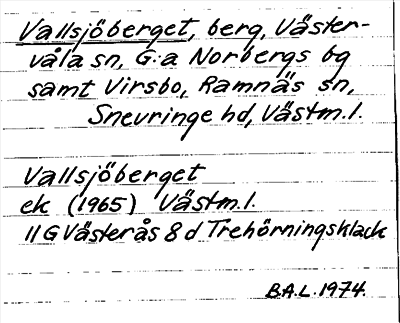 Vallsjöberget, berg, Väster-
våla sn, G:a Norbergs bg
samt Virsbo, Ramnäs sn,
Snevringe hd, Västm.l.
Vallsjöberget
ek (1965) Västm.l.
11G Västerås 8 d Trehörningsklack
B.A.L. 1974.